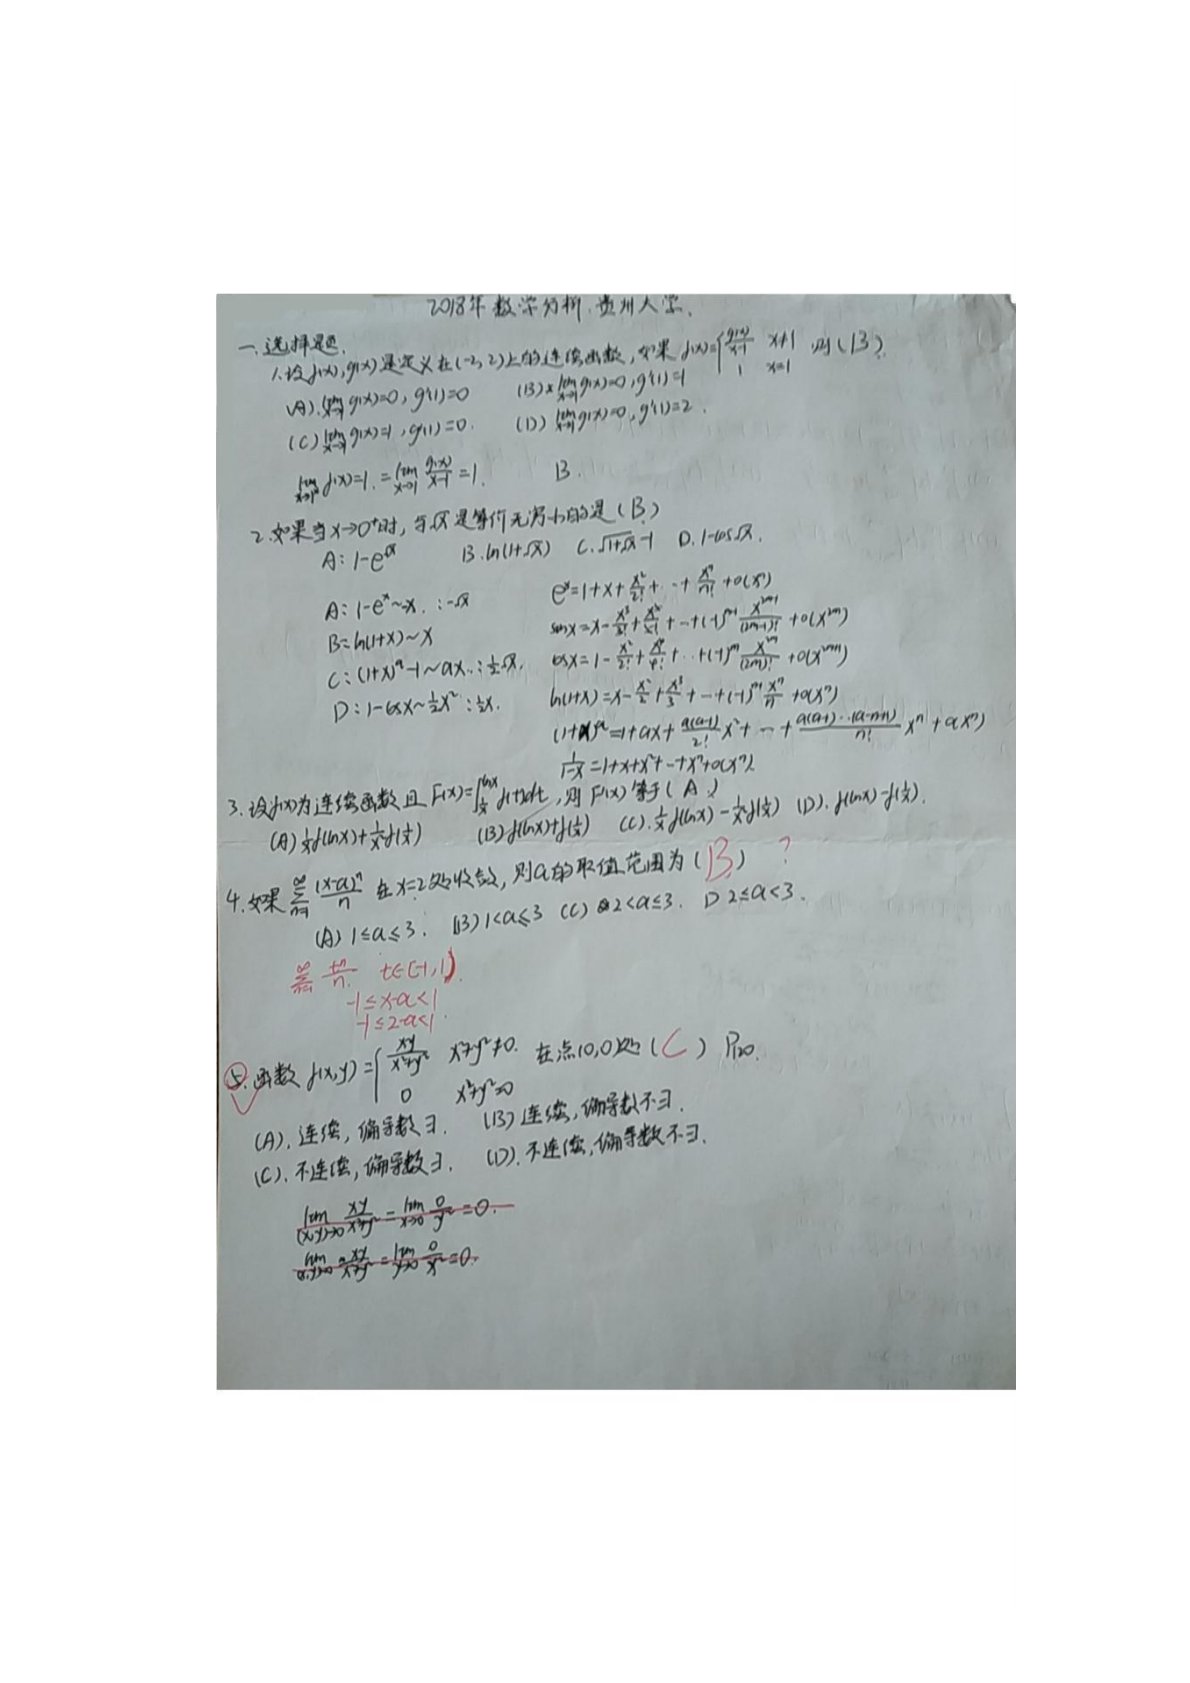 2018年数学分析.贵州大学.
一.选择题.
1.设f(x),g(x)是定义在(-2,2)上的连续函数,如果f(x)={g(x)/(x-1) x≠1 则(B).
1 x=1
(A).lim x→1 g(x)=0, g'(1)=0 (B) lim x→1 g(x)=0, g'(1)=1
(C) lim x→1 g(x)=1, g'(1)=0. (D) lim x→1 g(x)=0, g'(1)=2.
lim x→1 f(x)=1.=lim x→1 g(x)/(x-1)=1. B.
2.如果当x→0⁺时,与√x是等价无穷小的是(B)
A: 1-e^√x B.ln(1+√x) C.√(1+√x)-1 D.1-cos√x.
e^x=1+x+x²/2!+…+xⁿ/n!+o(xⁿ)
A: 1-e^x~-x. :-√x
B=ln(1+x)~x
C:(1+x)^a-1~ax.:½√x.
D:1-cosx~½x²:½x.
ln(1+x)=x-x²/2+x³/3+…+(-1)^(n-1) xⁿ/n+o(xⁿ)
(1+x)^a=1+ax+a(a-1)/2! x²+…+a(a-1)…(a-n+1)/n! xⁿ+o(xⁿ)
1/(1-x)=1+x+x²+…+xⁿ+o(xⁿ).
3.设f(x)为连续函数且F(x)=∫_{1/x}^{lnx} f(t)dt,则F'(x)等于(A)
(A) 1/x f(lnx)+1/x² f(1/x) (B) f(lnx)+f(1/x) (C). 1/x f(lnx)-1/x² f(1/x) (D). f(lnx)-f(1/x).
4.如果 ∑_{n=1}^∞ (x-a)ⁿ/n 在x=2处收敛,则a的取值范围为(B) ?
(A) 1≤a≤3. (B) 1<a≤3 (C) 2<a≤3. D 2≤a<3.
∑_{n=1}^∞ tⁿ/n. t∈[-1,1).
-1≤x-a<1
-1≤2-a<1.
5.函数 f(x,y)={xy/(x²+y²) x²+y²≠0. 在点(0,0)处(C) P120.
0 x²+y²=0
(A).连续,偏导数∃. (B)连续,偏导数不∃.
(C).不连续,偏导数∃. (D).不连续,偏导数不∃.
lim (x,y)→0 xy/(x²+y²)=lim x→0 0/y²=0.
lim (x,y)→0 xy/(x²+y²)=lim y→0 0/x²=0.